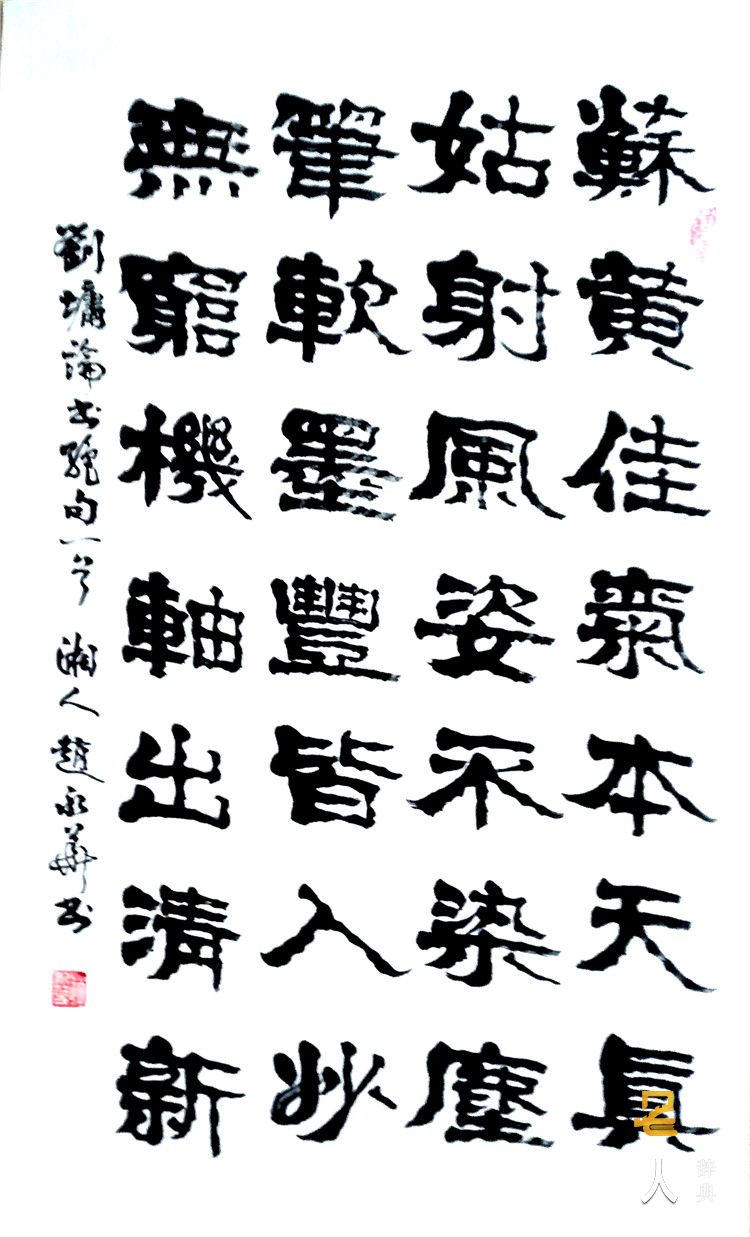 蘇黃佳氣本天真
姑射風姿不染塵
筆軟墨豐皆入妙
無窮機軸出清新
劉墉論書絕句一首 湘人趙永華書
名人辞典